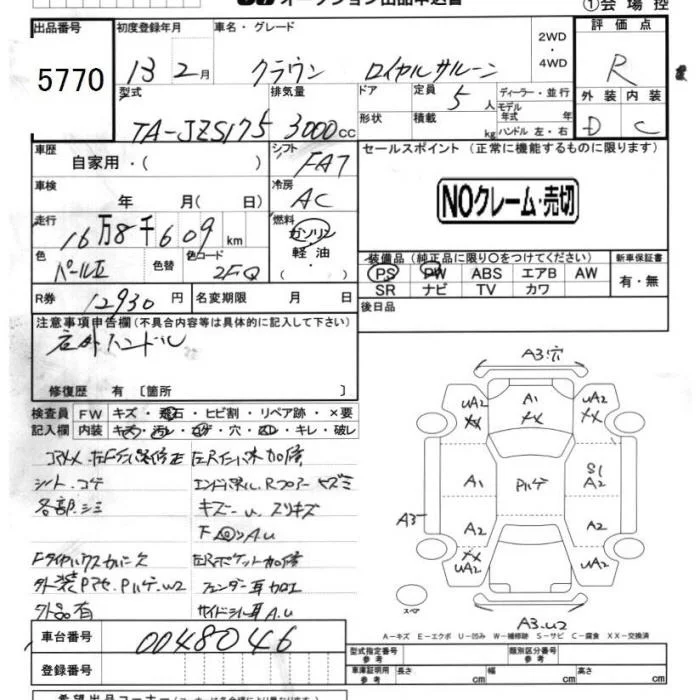 オークション出品申込書
①会場控
出品番号 初度登録年月 車名・グレード 評価点
5770 13 2月 クラウン ロイヤルサルーン 2WD・4WD R
型式 排気量 ドア 定員 5人 ディーラー・並行 外装 内装
TA-JZS175 3000cc 形状 積載 kg モデル年式 年 ハンドル 左・右 D C
車歴 シフト セールスポイント (正常に機能するものに限ります)
自家用・( ) FAT
車検 冷房 NOクレーム・売切
年 月(日) AC
走行 燃料
16万8千609km ガソリン 軽油 ・( )
色 色替 色コード 装備品 (純正品に限り○をつけてください) 新車保証書
パールII 2FQ PS PW ABS エアB AW 有・無
SR ナビ TV カワ
R券 12930円 名変期限 月 日 後日品
注意事項申告欄(不具合内容等は具体的に記入して下さい)
社外ハンドル
修復歴 有 〔箇所 〕
検査員 FW キズ・飛石・ヒビ割・リペア跡・×要
記入欄 内装 キズ・汚レ・コゲ・穴・ハレ・キレ・破レ
シート・コゲ
各部・シミ
キズ一u スリキズ
下回りA.u
外品有
サイドシル耳A.u
車台番号 0048046
登録番号
A3穴
uA2 XX A1 XX uA2 XX
A1 Pハゲ S1 A2
A3 A2 A2
XX uA2 uA2
スペア
A3.u2
A－キズ E－エクボ U－凹み W－補修跡 S－サビ C－腐食 XX－交換済
型式指定番号 参考 類別区分番号 参考
車庫証明用 参考 長さ cm 幅 cm 高さ cm
希望出品コーナー